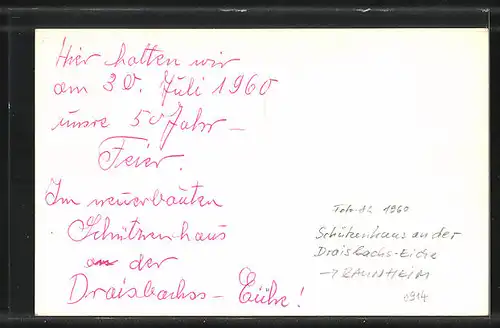 Hier hatten wir
am 30. Juli 1960
unsre 50 Jahr –
Feier.
Im neuerbauten
Schützenhaus
an der
Draisbachss – Eiche!
Foto 1960
Schützenhaus an der
Draisbachs-Eiche
→ RAUNHEIM
0914